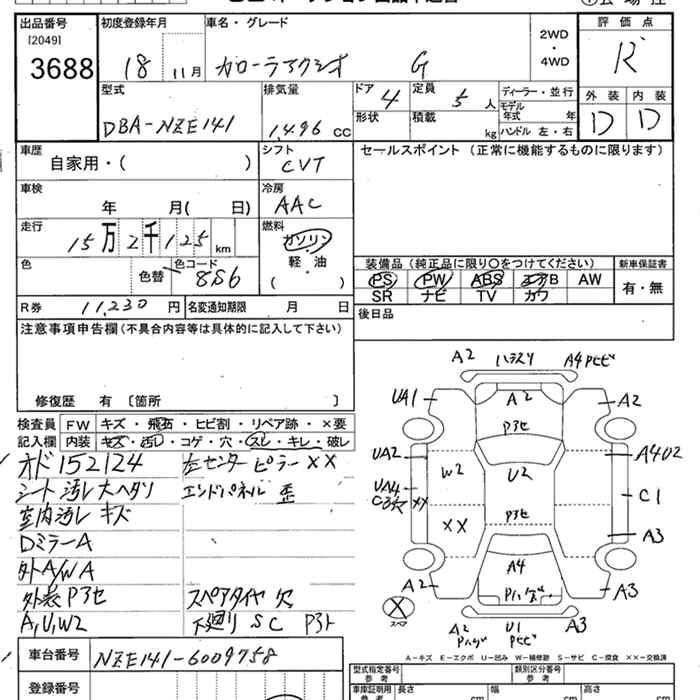 出品番号 初度登録年月 車名・グレード 2WD・4WD 評価点
[2049]
3688 18 11月 カローラアクシオ G R
外装 内装
D D
型式 排気量 ドア 4 定員 5人 ディーラー・並行
DBA-NZE141 1,496 cc 形状 積載 kg モデル年式 年
ハンドル 左・右
車歴 シフト セールスポイント(正常に機能するものに限ります)
自家用・( ) CVT
車検 冷房
年 月( 日) AAC
走行 燃料
15万2千125km ガソリン
軽・油
色 色替 色コード ( )
8S6
装備品(純正品に限り〇をつけてください) 新車保証書
PS PW ABS エアB AW 有・無
SR ナビ TV カワ
R券 11,230円 名変通知期限 月 日
後日品
注意事項申告欄(不具合内容等は具体的に記入して下さい)
修復歴 有 〔箇所 〕
検査員 FW キズ・飛石・ヒビ割・リペア跡・×要
記入欄 内装 キズ・汚レ・コゲ・穴・スレ・キレ・破レ
オド152124 左センターピラーXX
シート汚レ大ヘタリ エンドパネル歪
室内汚レキズ
DミラーA
外A/WA
外装P3セ スペアタイヤ欠
A,U,W2 下廻りSC P3ト
車台番号 NZE141-6009758
登録番号
A2 ハネスリ A4Pヒビ
UA1 A2 A2
P3セ
UA2 W2 U2 A4U2
UA4 XX C1
XX P3セ
A3
A4
A2 A3
スペア
A2 U1 A3
Pヒビ
A－キズ E－エクボ U－凹み W－補修跡 S－サビ C－腐食 ××－交換済
型式指定番号 類別区分番号
参考 参考
車庫証明用 長さ 幅 高さ
参考 cm cm cm